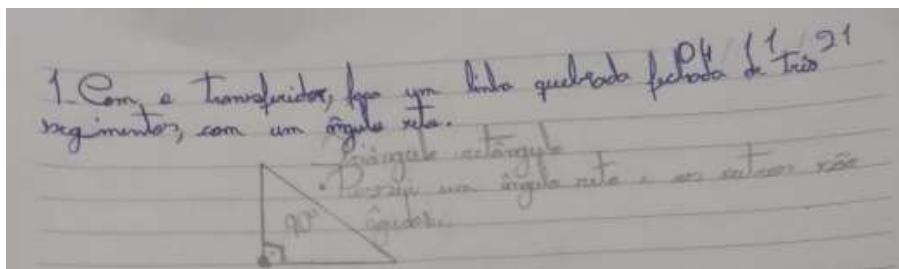 04/11/21
1-Com, o transferidor, faça um linha quebrada fechada de três
segmentos, com um ângulo reto.
Triângulo retângulo
• Possui um ângulo reto e os outros são
agudos.
90°